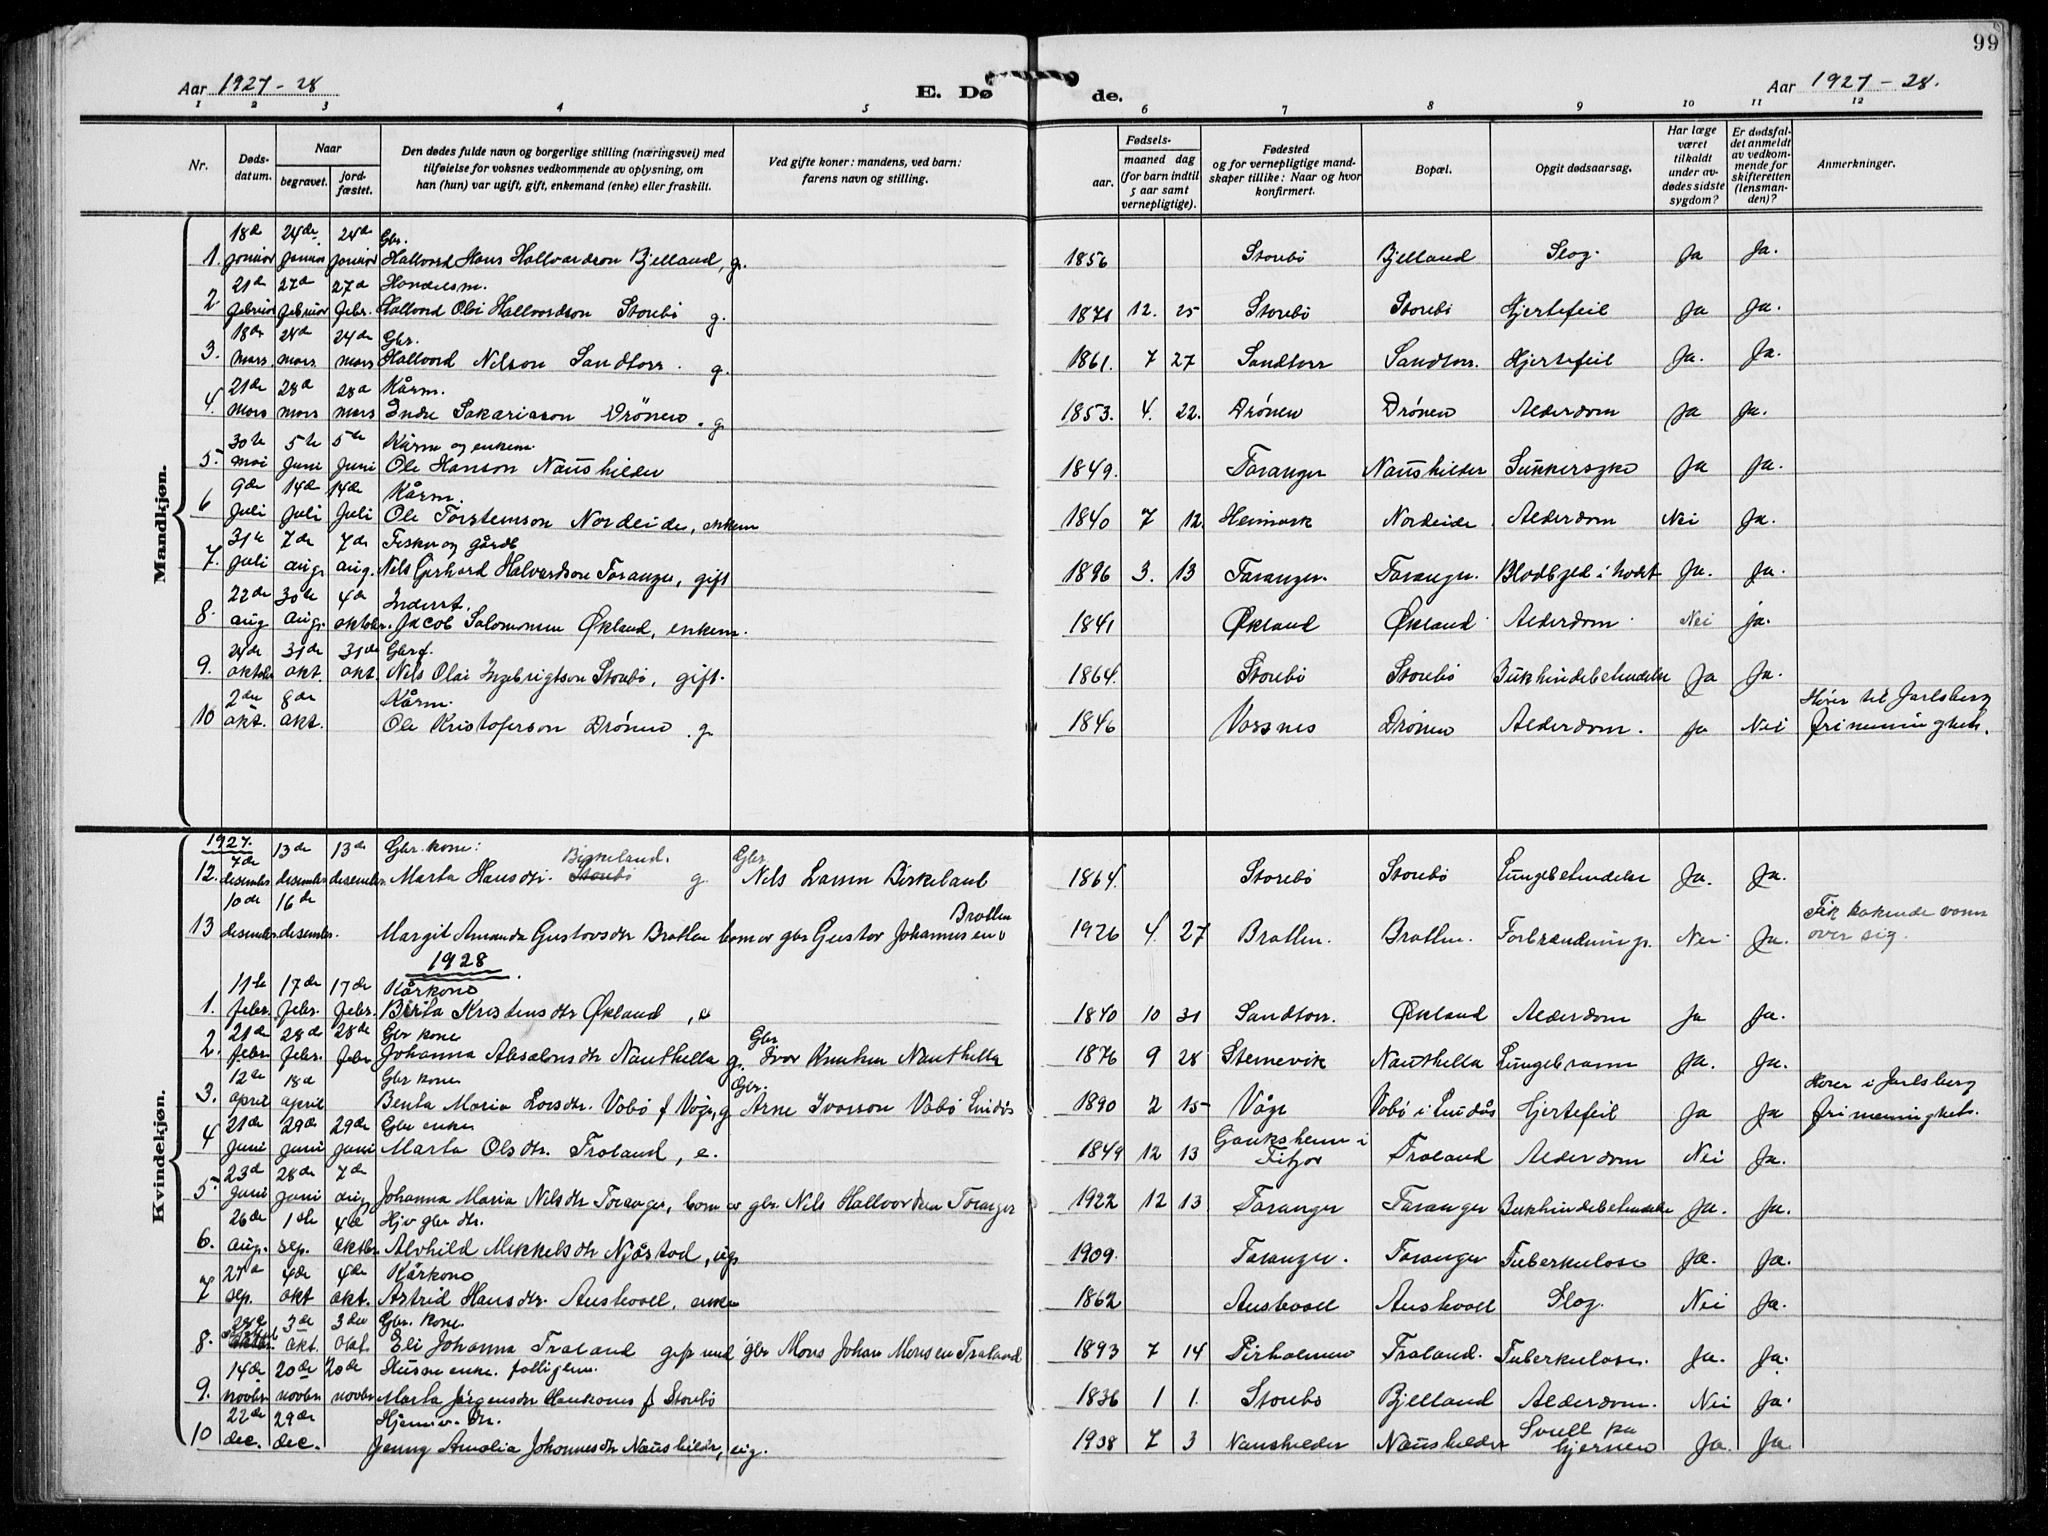 99
Aar 1927-28
E. Dø de.
Aar 1927-28.
1 2 3 4 5 6 7 8 9 10 11 12
Nr. Døds-datum. Naar begravet. jord-fæstet. Den dødes fulde navn og borgerlige stilling (næringsvei) med tilføielse for voksnes vedkommende av oplysning, om han (hun) var ugift, gift, enkemand (enke) eller fraskilt. Ved gifte koner: mandens, ved barn: farens navn og stilling. Fødsels- aar. maaned dag (for barn indtil 5 aar samt vernepligtige). Fødested og for vernepligtige mand-skaper tillike: Naar og hvor konfirmert. Bopæl. Opgit dødsaarsag. Har læge været tilkaldt under av-dødes sidste sygdom? Er dødsfal-det anmeldt av vedkom-mende for skifteretten (lensman-den)? Anmerkninger.
Mandkjøn.
18de 24de 24de Gbr.
1. januar januar januar Hallvord Hans Hallvardson Bjelland, g. 1856 Storebø Bjelland Slag. Ja Ja.
21de 27de 27de Handelsm.
2 februar februar febr. Hallvord Olai Hallvordson Storebø g. 1871 12. 25 Storebø Storebø Hjertefeil Ja Ja.
18de 24de 24de Gbr.
3. mars mars. mars Hallvord Nilson Sandtorv. g. 1861. 7 27 Sandtorv Sandtorv. Hjertefeil Ja. Ja.
21de 28de 28de Kårm.
4. mars mars mars Endre Sakariasson Drönen. g. 1853. 4. 22. Drönen Drönen Alderdom Ja Ja.
30te 5te 5te Kårm og enkem.
5. mai Juni Juni Ole Hanson Naushilder 1849. Toranger Naushilder Sukkersyke Ja Ja.
9de 14de 14de Kårm.
6 Juli Juli Juli Ole Torsteinson Nordeide, enkem 1840 7 12 Heimark Nordeide Alderdom Nei Ja.
31te 7de 7de Fisker og gårdb
7. Juli aug. aug. Nils Gerhard Halvardson Toranger, gift 1896 3. 13 Toranger. Toranger. Ja. Ja.
22de 30te 4de Inderst.
8. aug aug. oktober. Jacob Salomonsen Økland, enkem. 1841 Økland Økland Alderdom Nei ja.
24de 31de 31de Gbrf.
9. oktober okt. okt. Nils Olai Ingebrigtson Storebø, gift. 1864. Storebø Storebø Bukhindebetendelse Ja Ja.
2den 8de Kårm.
10 okt. okt. Ole Kristoferson Drönen. g. 1846 Vossnes Drönen Alderdom. Ja Nei Hører til Jarlsberg frimenighet.
Kvindekjøn.
1927.
7de 13de 13de Gbr. kone: Birkeland. Gbr.
12. desember desember desember. Marta Hansdtr. Storebø g. Nils Larsen Birkeland 1864. Storebø Storebø Lungebetendelse Ja. Ja.
10de 16de
13 desember. desember. Margit Amanda Gustavsdtr Bratten barn av gbr Gustav Johannesen Bratten 1926 4. 27 Bratten. Bratten. Forbrænding. Nei Ja. Fik kokende vann over sig.
1928
11te 17de 17de Kårkone
1. febr. febr. febr. Berta Kristensdtr Økland, e 1840 10 31 Sandtorv. Økland Alderdom Ja Ja.
21de 28de 28de Gbr kone Gbr
2. febr. febr. febr Johanna Absalonsdtr Nauthella g. Ivar Knutsen Nauthella 1876 9 28 Steinevik Nauthella Ja. Ja.
12te 18de Gbr kone. Gbr.
3. april april Benta Maria Larsdtr. Vabö f Våge, g Arne Ivarson Vabö Lindås 1890 2 15 Våge Vabö i Lindås Hjertefeil Ja Ja Hører i Jarlsberg frimenighet.
21de 29de 29de Gbr enke
4 Juni Juni Juni Marta Olsdtr. Froland, e. 1849 12 13 Gauksheim i Fitjar Froland Alderdom Nei Ja.
23d 28de 7de
5. Juni Juni aug Johanna Maria Nilsdtr Toranger, barn av gbr. Nils Hallvordsen Toranger 1922 12 13 Toranger Toranger Bukhindebetendelse Ja. Ja.
26de 1ste 4de Hjv gbr dtr.
6. aug. sep. oktbr. Alvhild Mikkelsdtr Njåstad, ug. 1909. Toranger. Toranger Tuberkulose Ja. Ja.
27d 4de 4de Kårkone
7 sep. okt okt. Astrid Hansdtr. Austevoll, enke 1862 Austevoll Austevoll Slag. Nei Ja.
28de 3de 3die Gbr. kone.
8. okt. okt. Eli Johanna Froland gift med gbr Mons Johan Monsen Froland 1893 7 14 Pirholmen Froland. Tuberkulose. Ja. Ja.
14de 20de 20de Husm enke. fattiglem.
9. novbr novbr novbr Marta Jørgensdtr Haukanes f Storebø 1836 1 1. Storebø Bjelland Alderdom. Nei Ja.
22de 29de Hjemmv. Dtr.
10 dec. dec. Jenny Amalia Johannesdtr Naushilder, ug. 1908 7 3 Naushilder Naushilder Svull paa hjernen Ja. Ja.